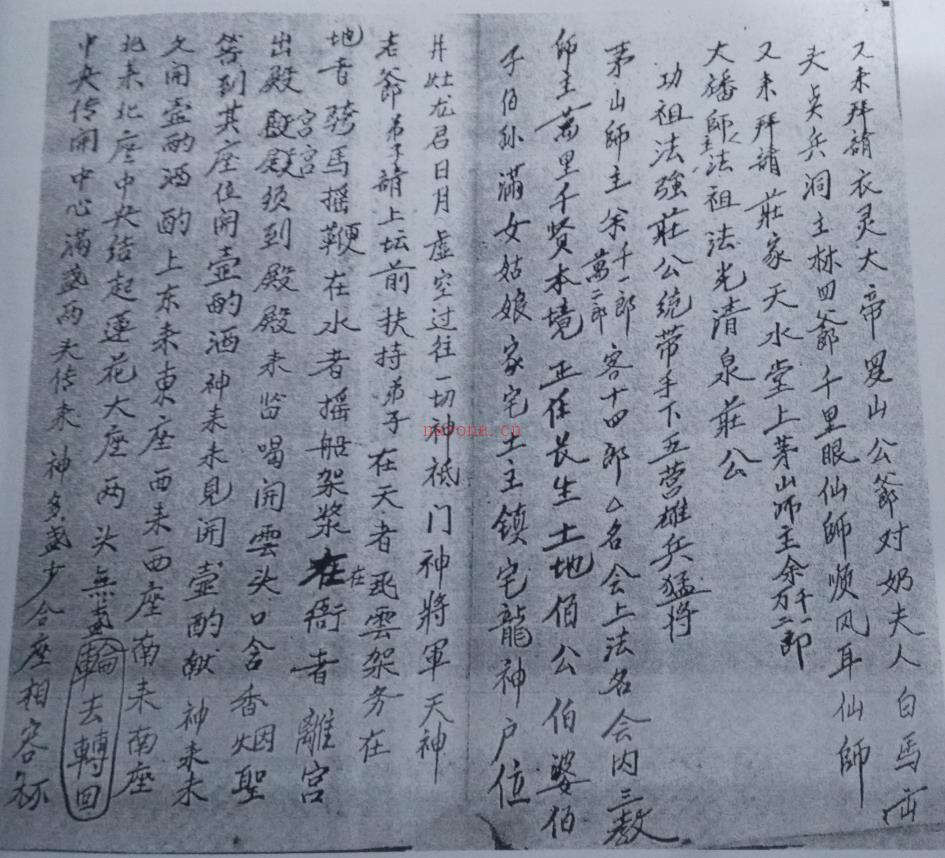 又来拜請衣灵大帝罗山公爺对奶夫人白馬
夫貞兵洞主林四爺千里眼仙師順风耳仙師
又来拜請莊家天水堂上茅山师主余千一郎万二郎
大旛師主法祖法光清泉莊公
功祖法強莊公统带手下五营雄兵猛将
茅山師主余千一郎萬二郎客十四郎么名会上法名会内三教
師主萬里千贤本境正任长生土地伯公伯婆伯
子伯孙滿女姑娘家宅土主鎮宅龍神户位
井灶龙君日月虚空过往一切神祗门神將軍天神
老爺弟子請上坛前扶持弟子在天者飛雲架务在
地者骑馬摇鞭在水者摇船架浆在衙者離宫
出殿宫宫殿殿须到殿殿来峕喝開雲头口含香烟聖
答到其座位開壶酌酒神来未見開壶酌献神来未
久開壶酌酒酌上东来東座西来西座南来南座
北来北座中央结起蓮花大座两头無盞輪去轉回
中央传開中心滿盏两头传来神多盏少合座相容杯
navona.cn